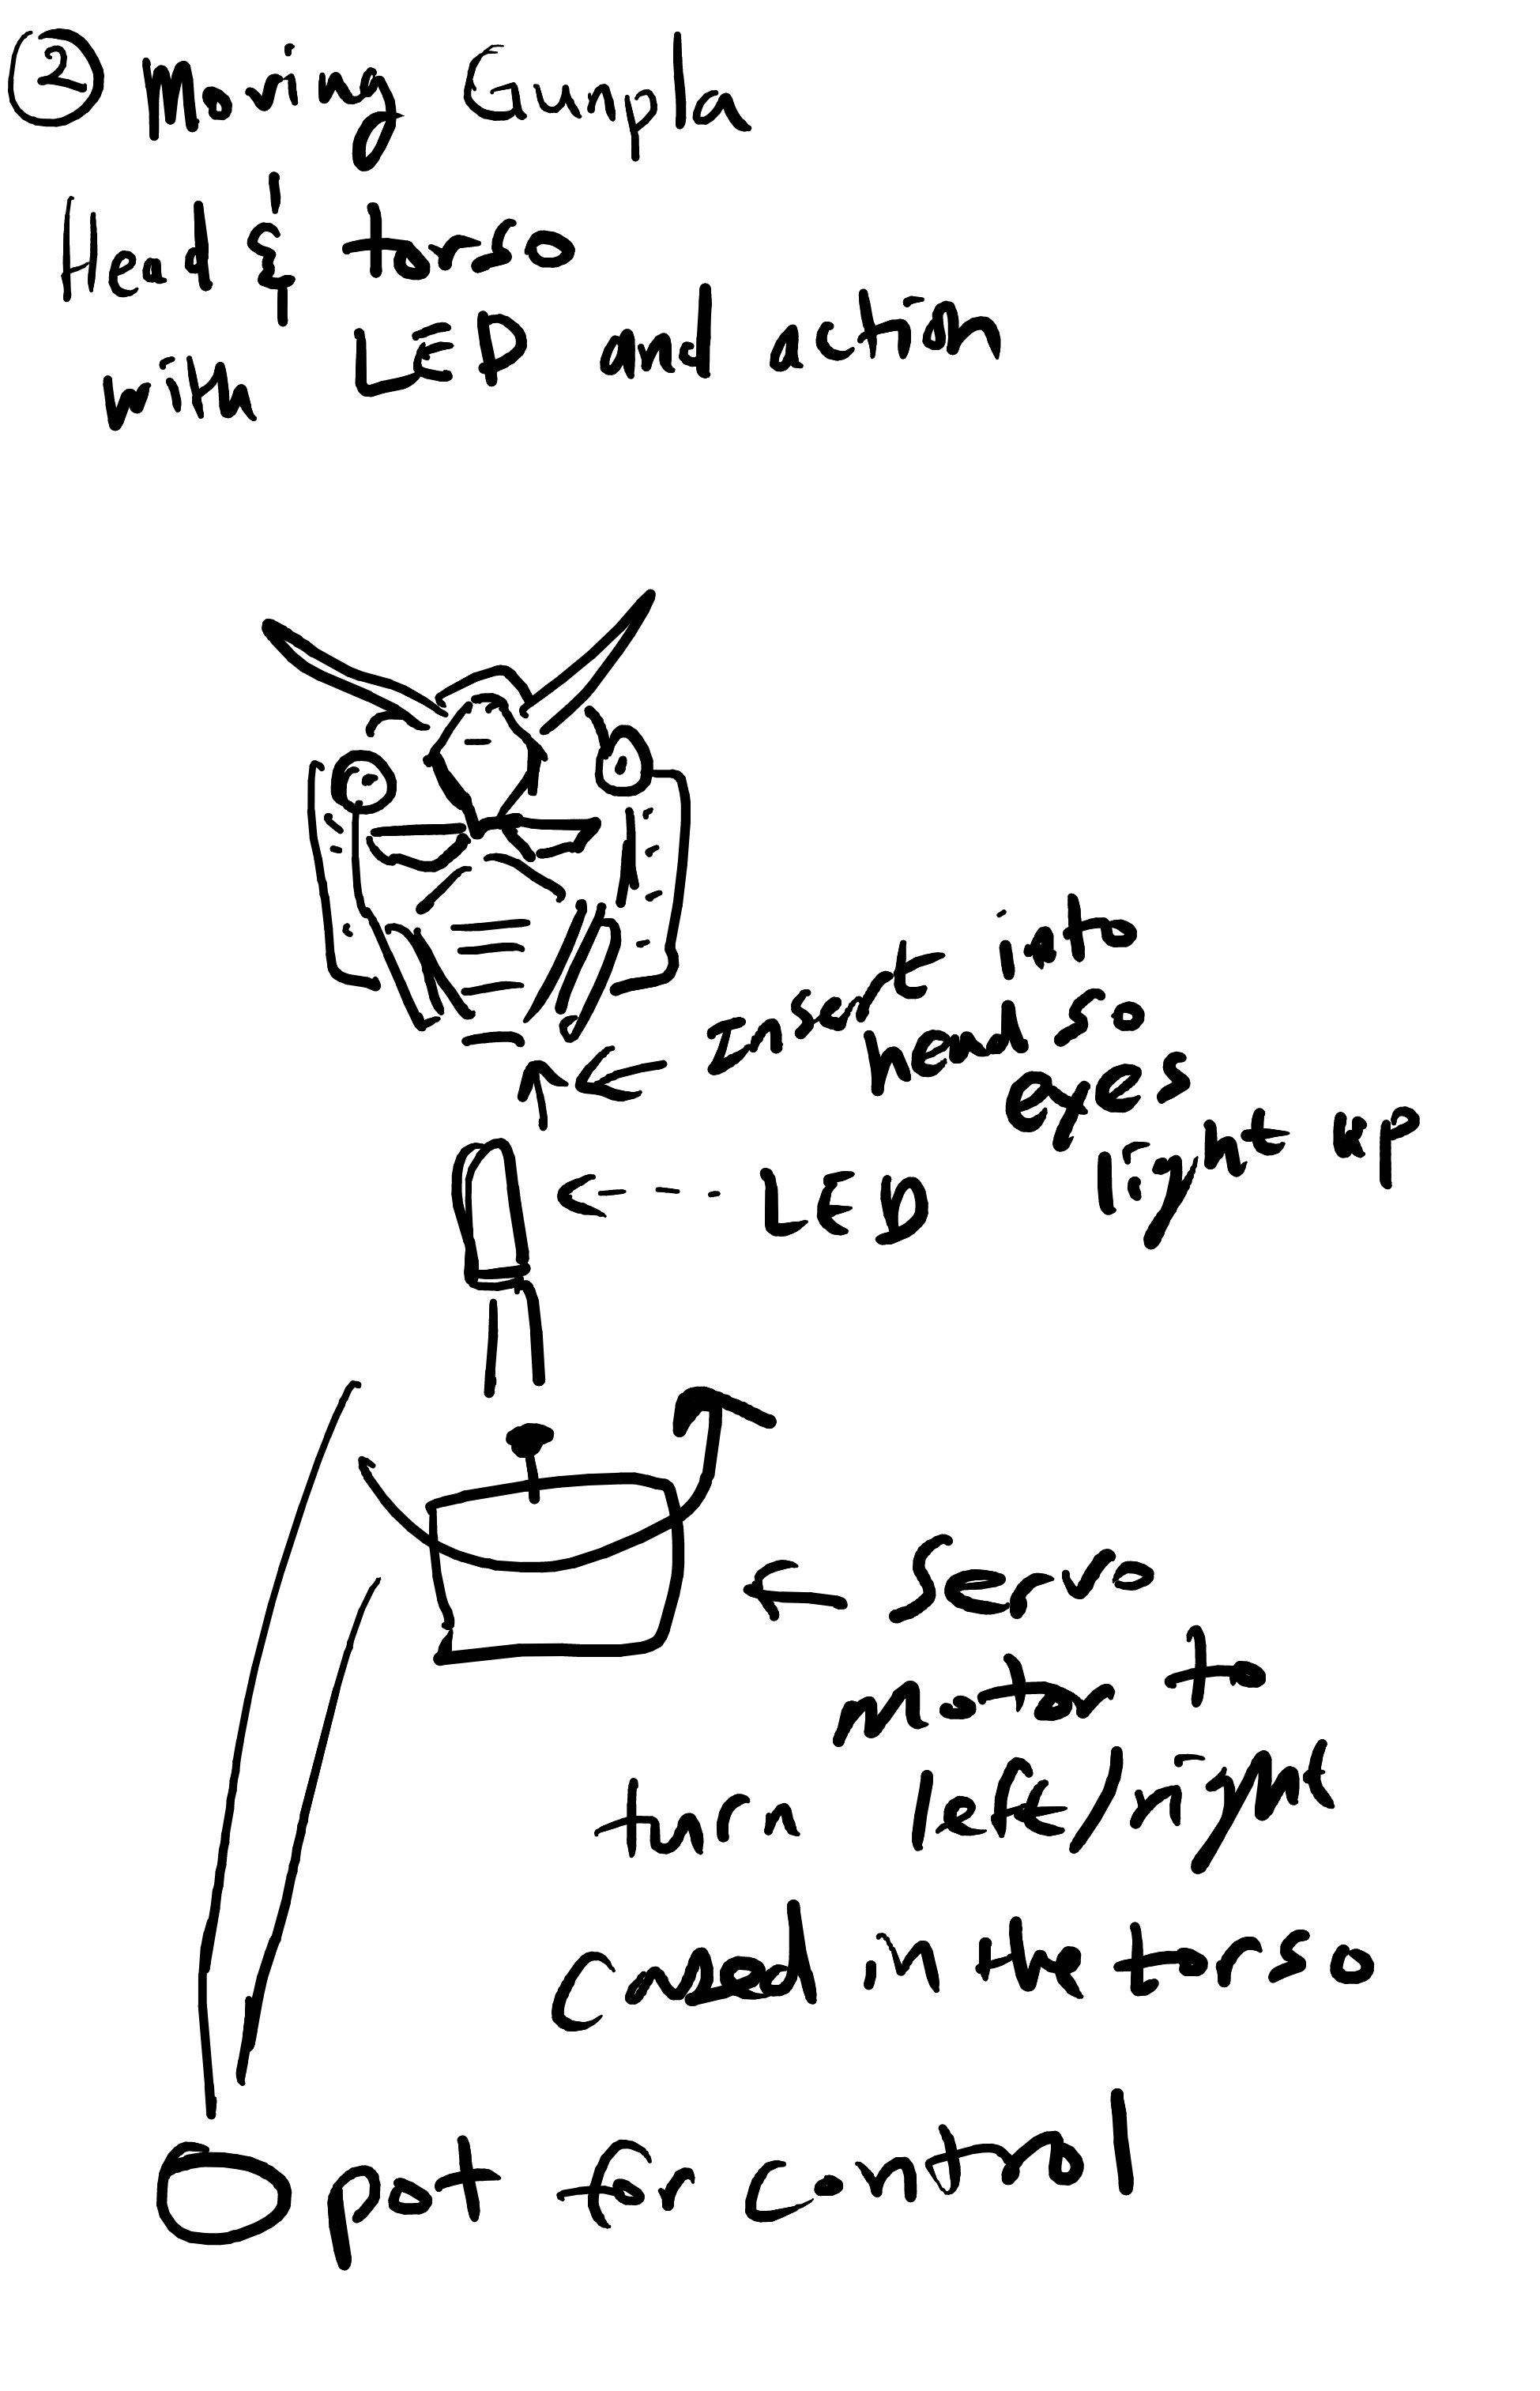 ② Moving Gunpla
Head & torso
with LED and action
Insert into
head so
eyes
light up
LED
Servo
motor to
turn left/right
in the torso
pot for control